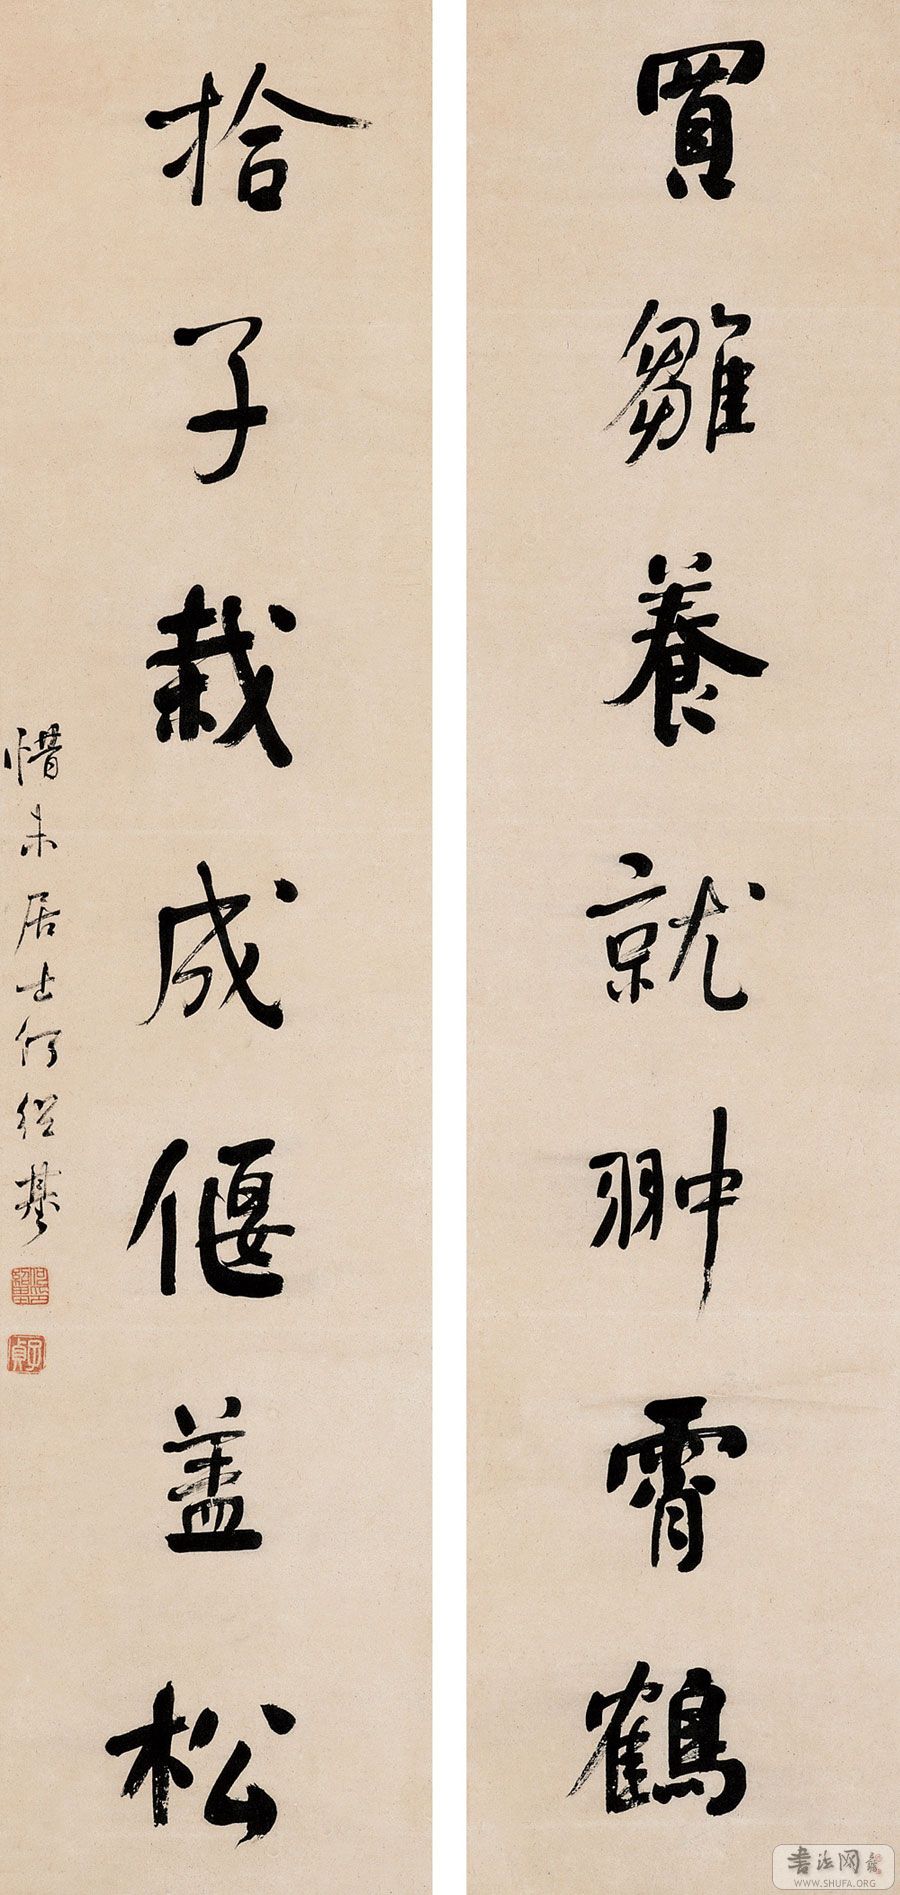 買雛養就翀霄鶴
拾子栽成偃蓋松
惜未居士何紹基
子貞
書法网
WWW.SHUFA.ORG